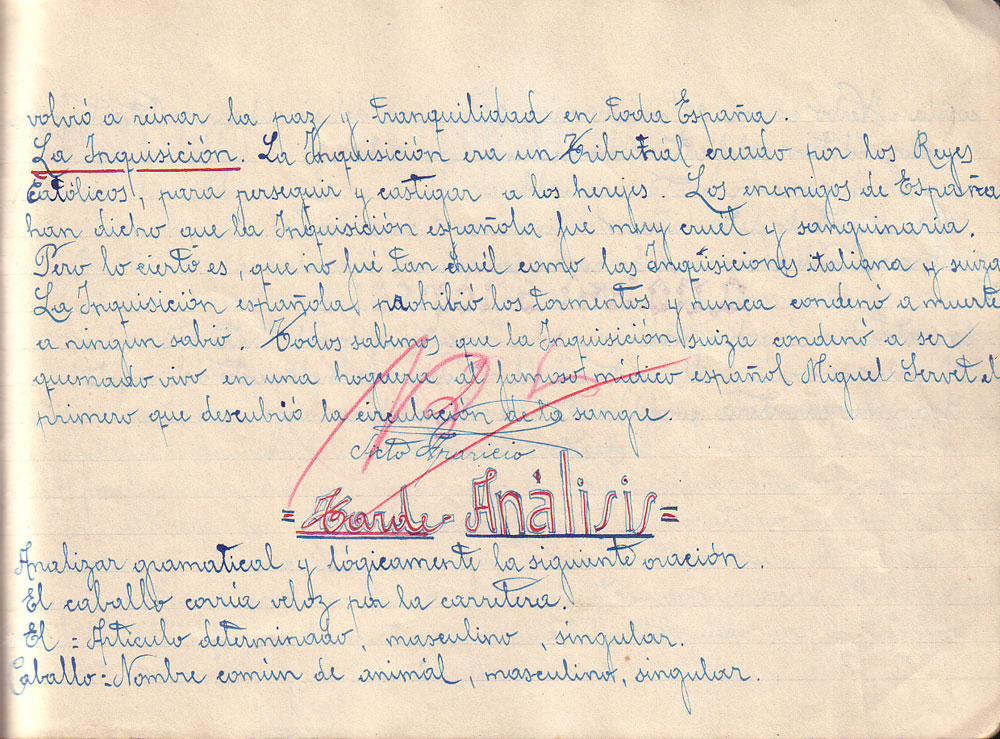 volvió a reinar la paz y tranquilidad en toda España.
La Inquisición. La Inquisición era un Tribunal creado por los Reyes
Católicos, para perseguir y castigar a los herejes. Los enemigos de España
han dicho que la Inquisición española fué muy cruel y sanguinaria.
Pero lo cierto es, que no fué tan cruél como las Inquisiciones italiana y suiza
La Inquisición española, prohibió los tormentos y nunca condenó a muerte
a ningún sabio. Todos sabemos que la Inquisición suiza condenó a ser
quemado vivo en una hoguera al famoso médico español Miguel Servet el
primero que descubrió la circulación de la sangre.
Aparicio
= Tarde - Análisis =
Analizar gramatical y lógicamente la siguiente oración.
El caballo corría veloz por la carretera.
El = Artículo determinado, masculino, singular.
Caballo = Nombre común de animál, masculino, singular.